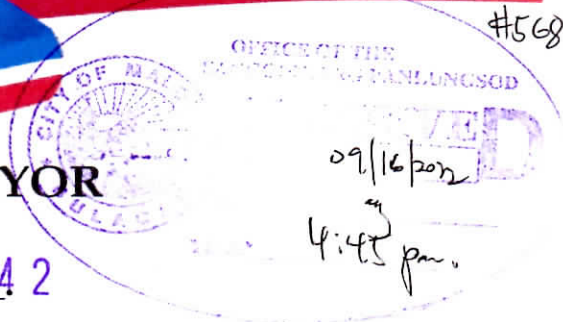 #568
OFFICE OF THE
PANLUNGSOD
CITY OF
VED
09/16/2022
YOR
4:45 pm.
42